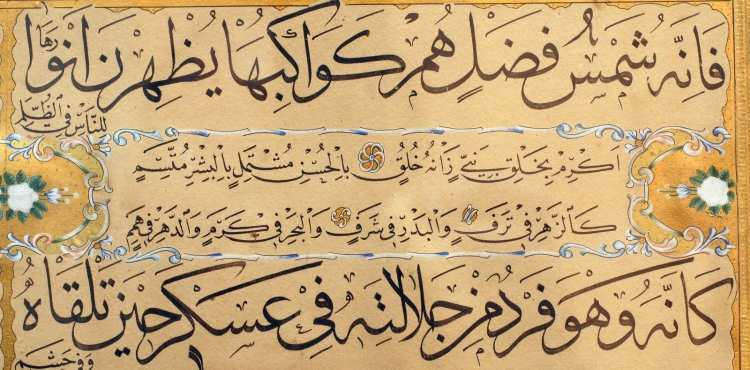 فَإِنَّهُ شَمْسُ فَضْلٍ هُمْ كَوَاكِبُهَا يُظْهِرْنَ اَنْوَارَهَا
لِلنَّاسِ فِي الظُّلَمِ
اَكْرِمْ بِخَلْقِ نَبِيٍّ زَانَهُ خُلُقٌ بِالْحُسْنِ مُشْتَمِلٍ بِالْبِشْرِ مُتَّسِمِ
كَالزَّهْرِ فِي تَرَفٍ وَالْبَدْرِ فِي شَرَفٍ وَالْبَحْرِ فِي كَرَمٍ وَالدَّهْرِ فِي هِمَمِ
كَاَنَّهُ وَهُوَ فَرْدٌ مِنْ جَلَالَتِهِ فِي عَسْكَرٍ حِينَ تَلْقَاهُ
وَفِي حَشَمِ